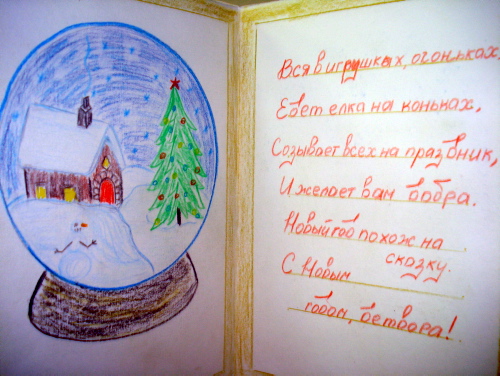 Вся в игрушках, огоньках,
Едет елка на коньках,
Созывает всех на праздник,
И желает вам добра.
Новый год похож на
сказку.
С Новым
годом, детвора!